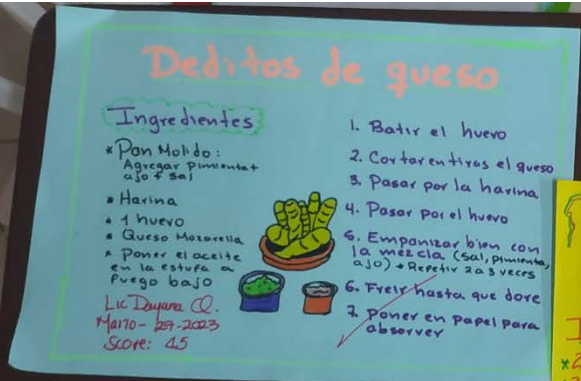 Deditos de queso
Ingredientes
* Pan Molido:
Agregar Pimienta +
ajo + sal
* Harina
* 1 huevo
* Queso Mozarella
* Poner el aceite
en la estufa a
fuego bajo
Lic Dayana Q.
29-2023
Score: 45
1. Batir el huevo
2. Cortar en tiras el queso
3. Pasar por la harina
4. Pasar por el huevo
5. Empanizar bien con
la mezcla (sal, pimienta,
ajo) * Repetir 2 a 3 veces
6. Freir hasta que dore
7. Poner en papel para
absorver